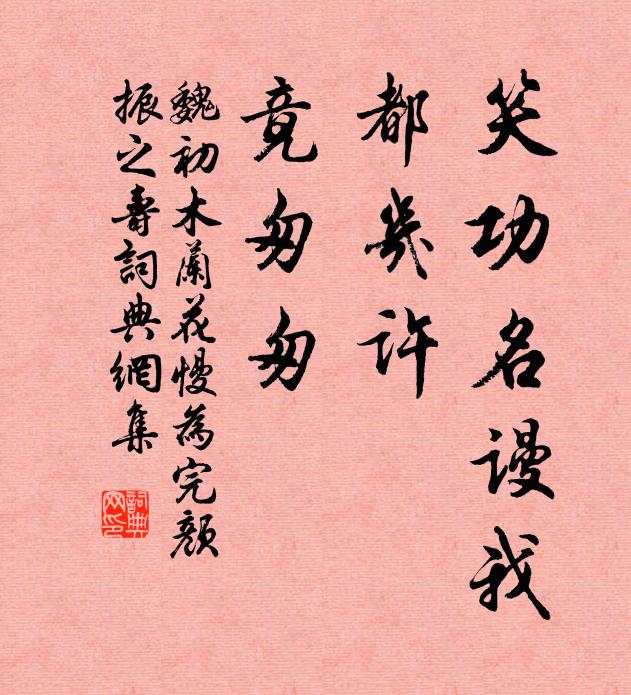 笑功名謾我
都幾許
竟匆匆
魏初木蘭花慢為完顏
振之壽詞典網集
詞典
网印